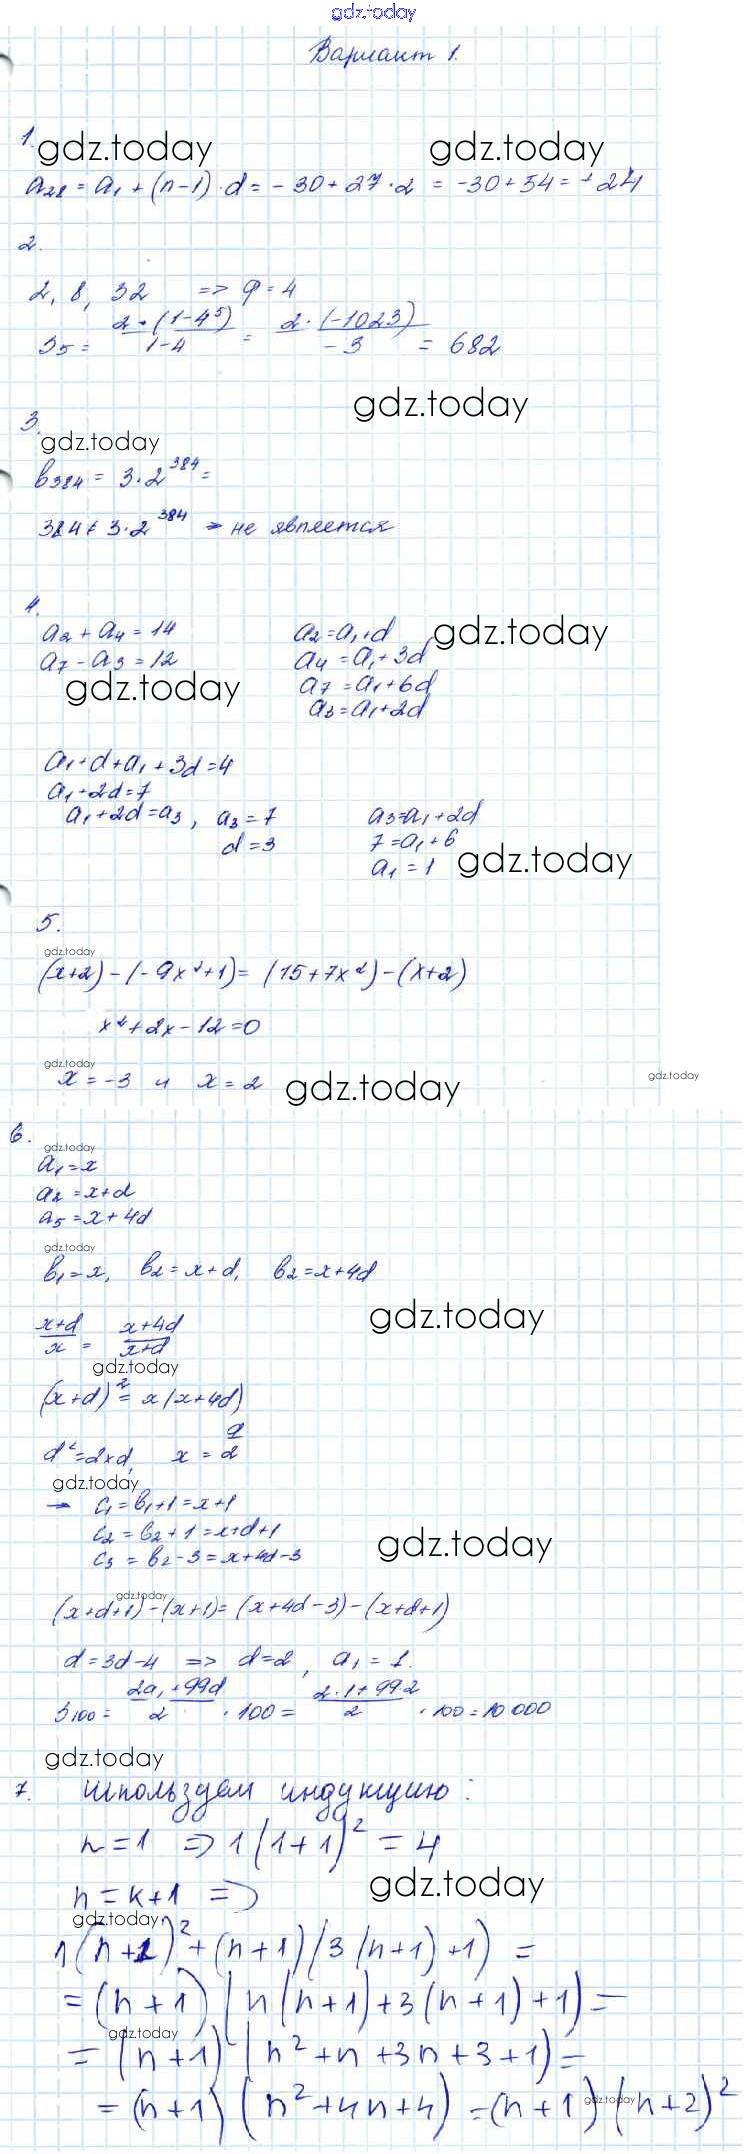 gdz.today
Вариант 1.
1.
gdz.today gdz.today
a₂₈ = a₁ + (n-1)·d = -30 + 27·2 = -30 + 54 = +24
2.
2, 8, 32 => q = 4
S₅ = 2·(1-4⁵)/1-4 = 2·(-1023)/-3 = 682
gdz.today
3.
gdz.today
b₃₈₄ = 3·2³⁸⁴ =
384 ≠ 3·2³⁸⁴ → не является
4.
a₂ + a₄ = 14 a₂ = a₁ + d gdz.today
a₇ - a₃ = 12 a₄ = a₁ + 3d
gdz.today a₇ = a₁ + 6d
a₃ = a₁ + 2d
a₁ + d + a₁ + 3d = 4
a₁ + 2d = 7
a₁ + 2d = a₃, a₃ = 7 a₃ = a₁ + 2d
d = 3 7 = a₁ + 6
a₁ = 1 gdz.today
5.
gdz.today
(x+2) - (-9x²+1) = (15+7x²) - (x+2)
x² + 2x - 12 = 0
gdz.today
x = -3 и x = 2 gdz.today gdz.today
6.
gdz.today
a₁ = x
a₂ = x + d
a₅ = x + 4d
gdz.today
b₁ = x, b₂ = x + d, b₂ = x + 4d
x+d/x = x+4d/x+d gdz.today
gdz.today
(x+d)² = x(x+4d)
d² = 2xd, x = d/2
gdz.today
→ c₁ = b₁ + 1 = x + 1
c₂ = b₂ + 1 = x + d + 1
c₃ = b₂ - 3 = x + 4d - 3 gdz.today
gdz.today
(x+d+1) - (x+1) = (x+4d-3) - (x+d+1)
d = 3d - 4 => d = 2, a₁ = 1.
S₁₀₀ = 2a₁+99d/2 · 100 = 2·1+99 2/2 · 100 = 10 000
gdz.today
7. используем индукцию:
n = 1 => 1(1+1)² = 4
n = k+1 => gdz.today
gdz.today
n(n+1)² + (n+1)(3(n+1)+1) =
= (n+1)(n(n+1)+3(n+1)+1) =
gdz.today
= (n+1)(n²+n+3n+3+1) =
= (n+1)(n²+4n+4) = (n+1)(n+2)²
gdz.today